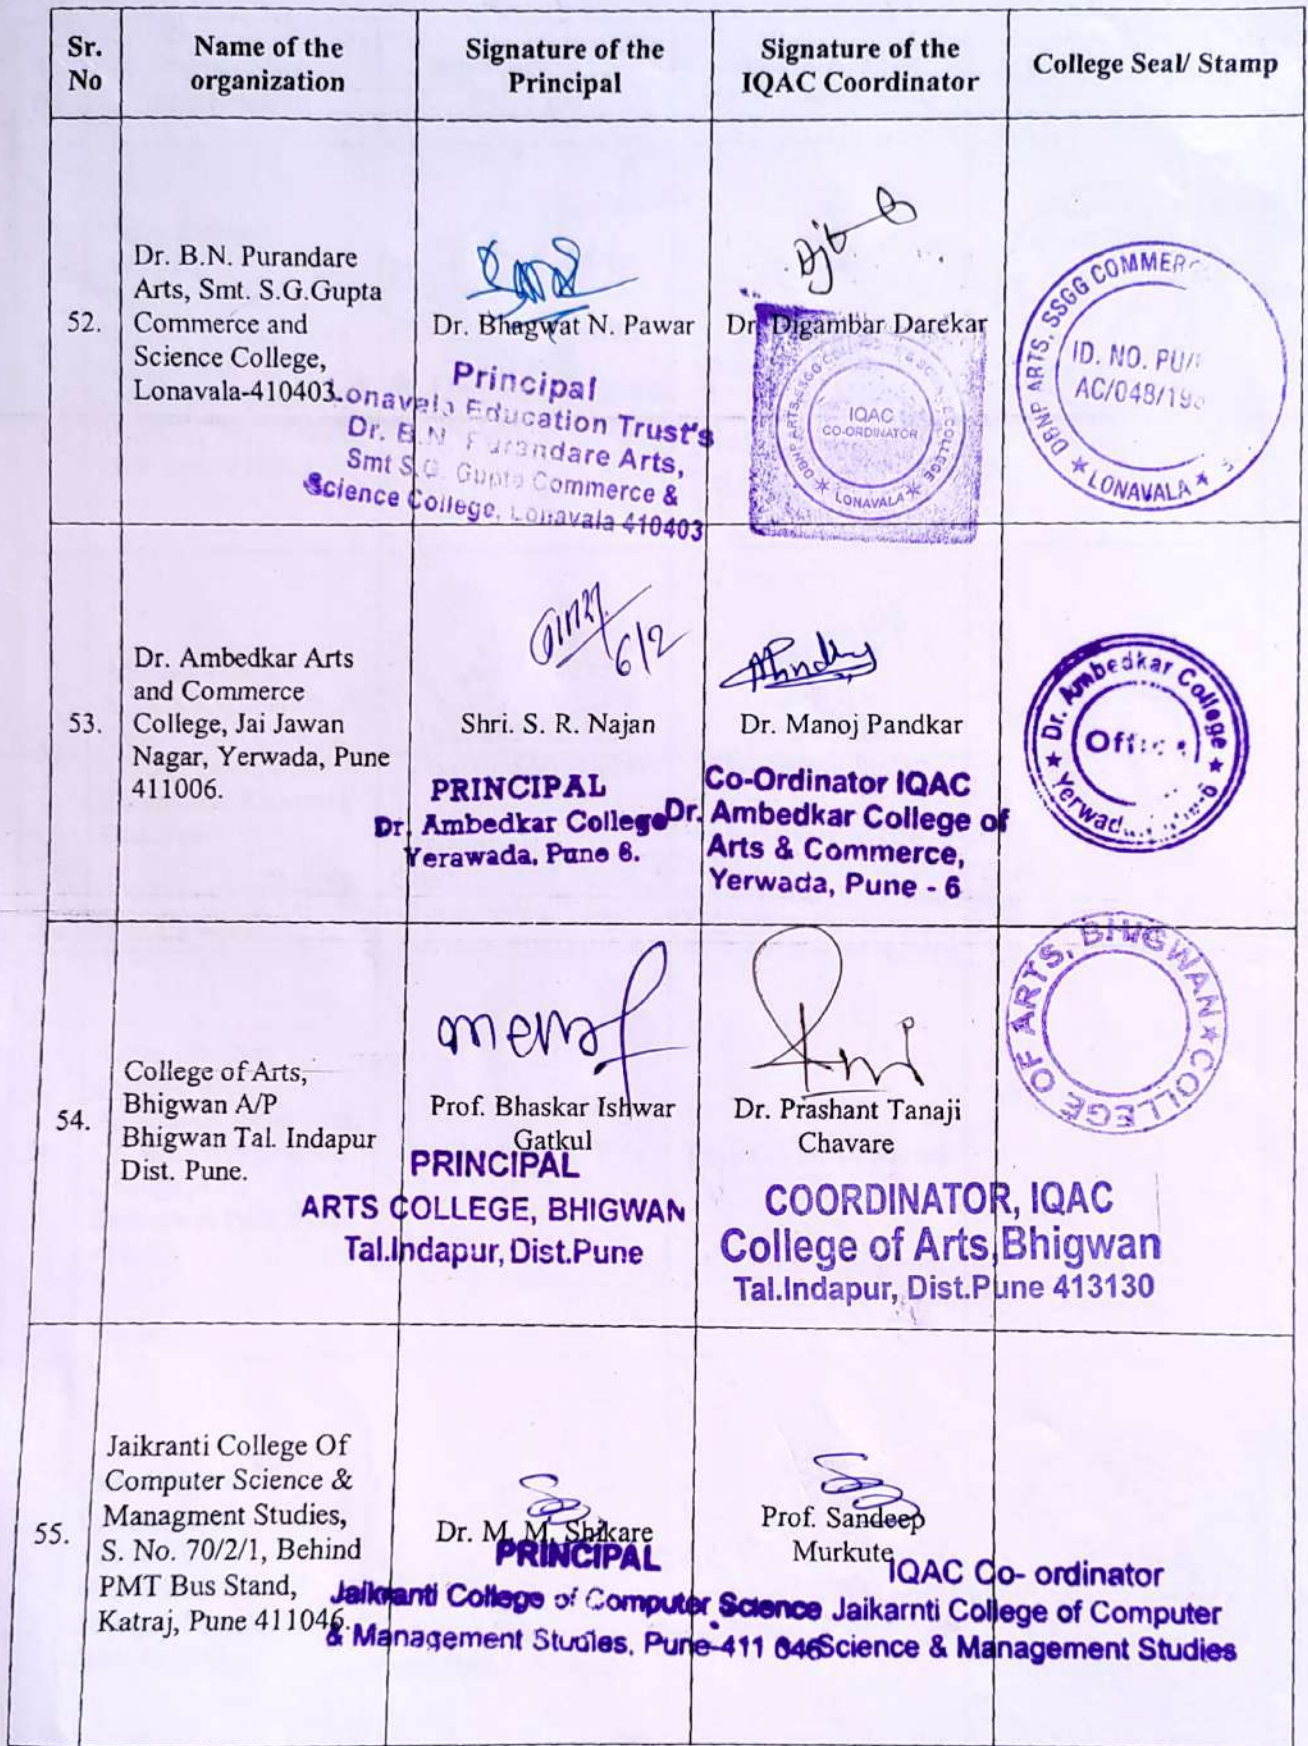 Sr.
No
Name of the
organization
Signature of the
Principal
Signature of the
IQAC Coordinator
College Seal/ Stamp
52.
Dr. B.N. Purandare
Arts, Smt. S.G.Gupta
Commerce and
Science College,
Lonavala-410403.
Dr. Bhagwat N. Pawar
Principal
Lonavala Education Trust's
Dr. B.N. Purandare Arts,
Smt S.G. Gupta Commerce &
Science College, Lonavala 410403
Dr. Digambar Darekar
IQAC
CO-ORDINATOR
LONAVALA
DBNP ARTS, SSGG COMMER
ID. NO. PU/
AC/048/19
LONAVALA
53.
Dr. Ambedkar Arts
and Commerce
College, Jai Jawan
Nagar, Yerwada, Pune
411006.
6/2
Shri. S. R. Najan
PRINCIPAL
Dr. Ambedkar College
Yerawada, Pune 6.
Dr. Manoj Pandkar
Co-Ordinator IQAC
Dr. Ambedkar College of
Arts & Commerce,
Yerwada, Pune - 6
Dr. Ambedkar College
Office
54.
College of Arts,
Bhigwan A/P
Bhigwan Tal. Indapur
Dist. Pune.
Prof. Bhaskar Ishwar
Gatkul
PRINCIPAL
ARTS COLLEGE, BHIGWAN
Tal.Indapur, Dist.Pune
Dr. Prashant Tanaji
Chavare
COORDINATOR, IQAC
College of Arts,Bhigwan
Tal.Indapur, Dist.Pune 413130
COLLEGE OF ARTS, BHIGWAN
55.
Jaikranti College Of
Computer Science &
Managment Studies,
S. No. 70/2/1, Behind
PMT Bus Stand,
Katraj, Pune 411046.
Dr. M. M. Shikare
PRINCIPAL
Jaikranti College of Computer Science
& Management Studies, Pune-411 046
Prof. Sandeep
Murkute
IQAC Co- ordinator
Jaikarnti College of Computer
Science & Management Studies